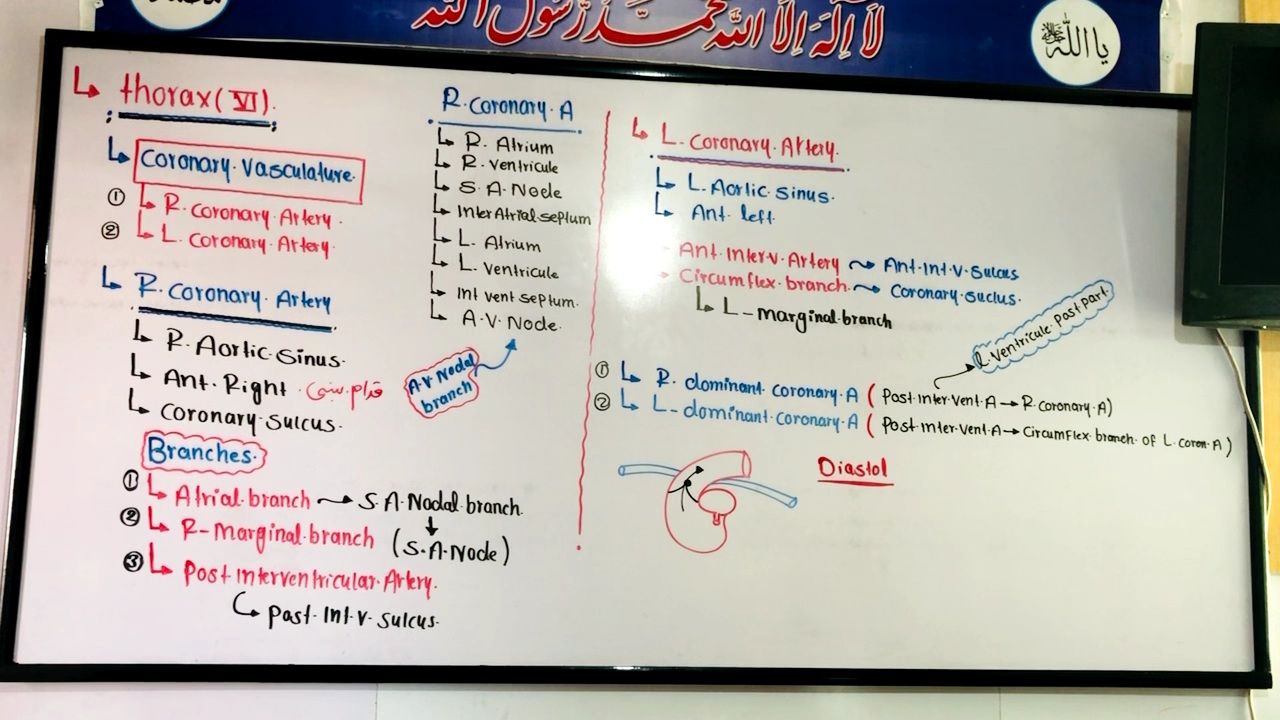 لَا اِلٰهَ اِلَّا اللّٰهُ مُحَمَّدٌ رَّسُوْلُ اللّٰهِ
يا الله
thorax (VI).
Coronary Vasculature.
① R. Coronary Artery.
② L. Coronary Artery.
R. Coronary Artery
R. Aortic Sinus.
Ant. Right.
Coronary Sulcus.
Branches.
① Atrial branch → S.A. Nodal branch.
↓
② R-Marginal branch (S.A. Node)
③ Post Interventricular Artery.
Post. Int. V. Sulcus.
R. Coronary. A
R. Atrium
R. Ventricule
S. A. Node
Inter Atrial septum
L. Atrium
L. Ventricule
Int vent septum.
A. V. Node.
A.V Nodal
branch
L. Coronary Artery.
L. Aortic Sinus.
Ant. left.
Ant. Inter. V. Artery → Ant. Int. V. Sulcus
Circumflex branch. → Coronary suclus.
L-marginal branch
L. Ventricule Post part.
① R. dominant coronary. A ( Post inter vent. A → R. coronary. A)
② L-dominant coronary. A ( Post inter vent. A → Circumflex branch of L. coron. A )
Diastol